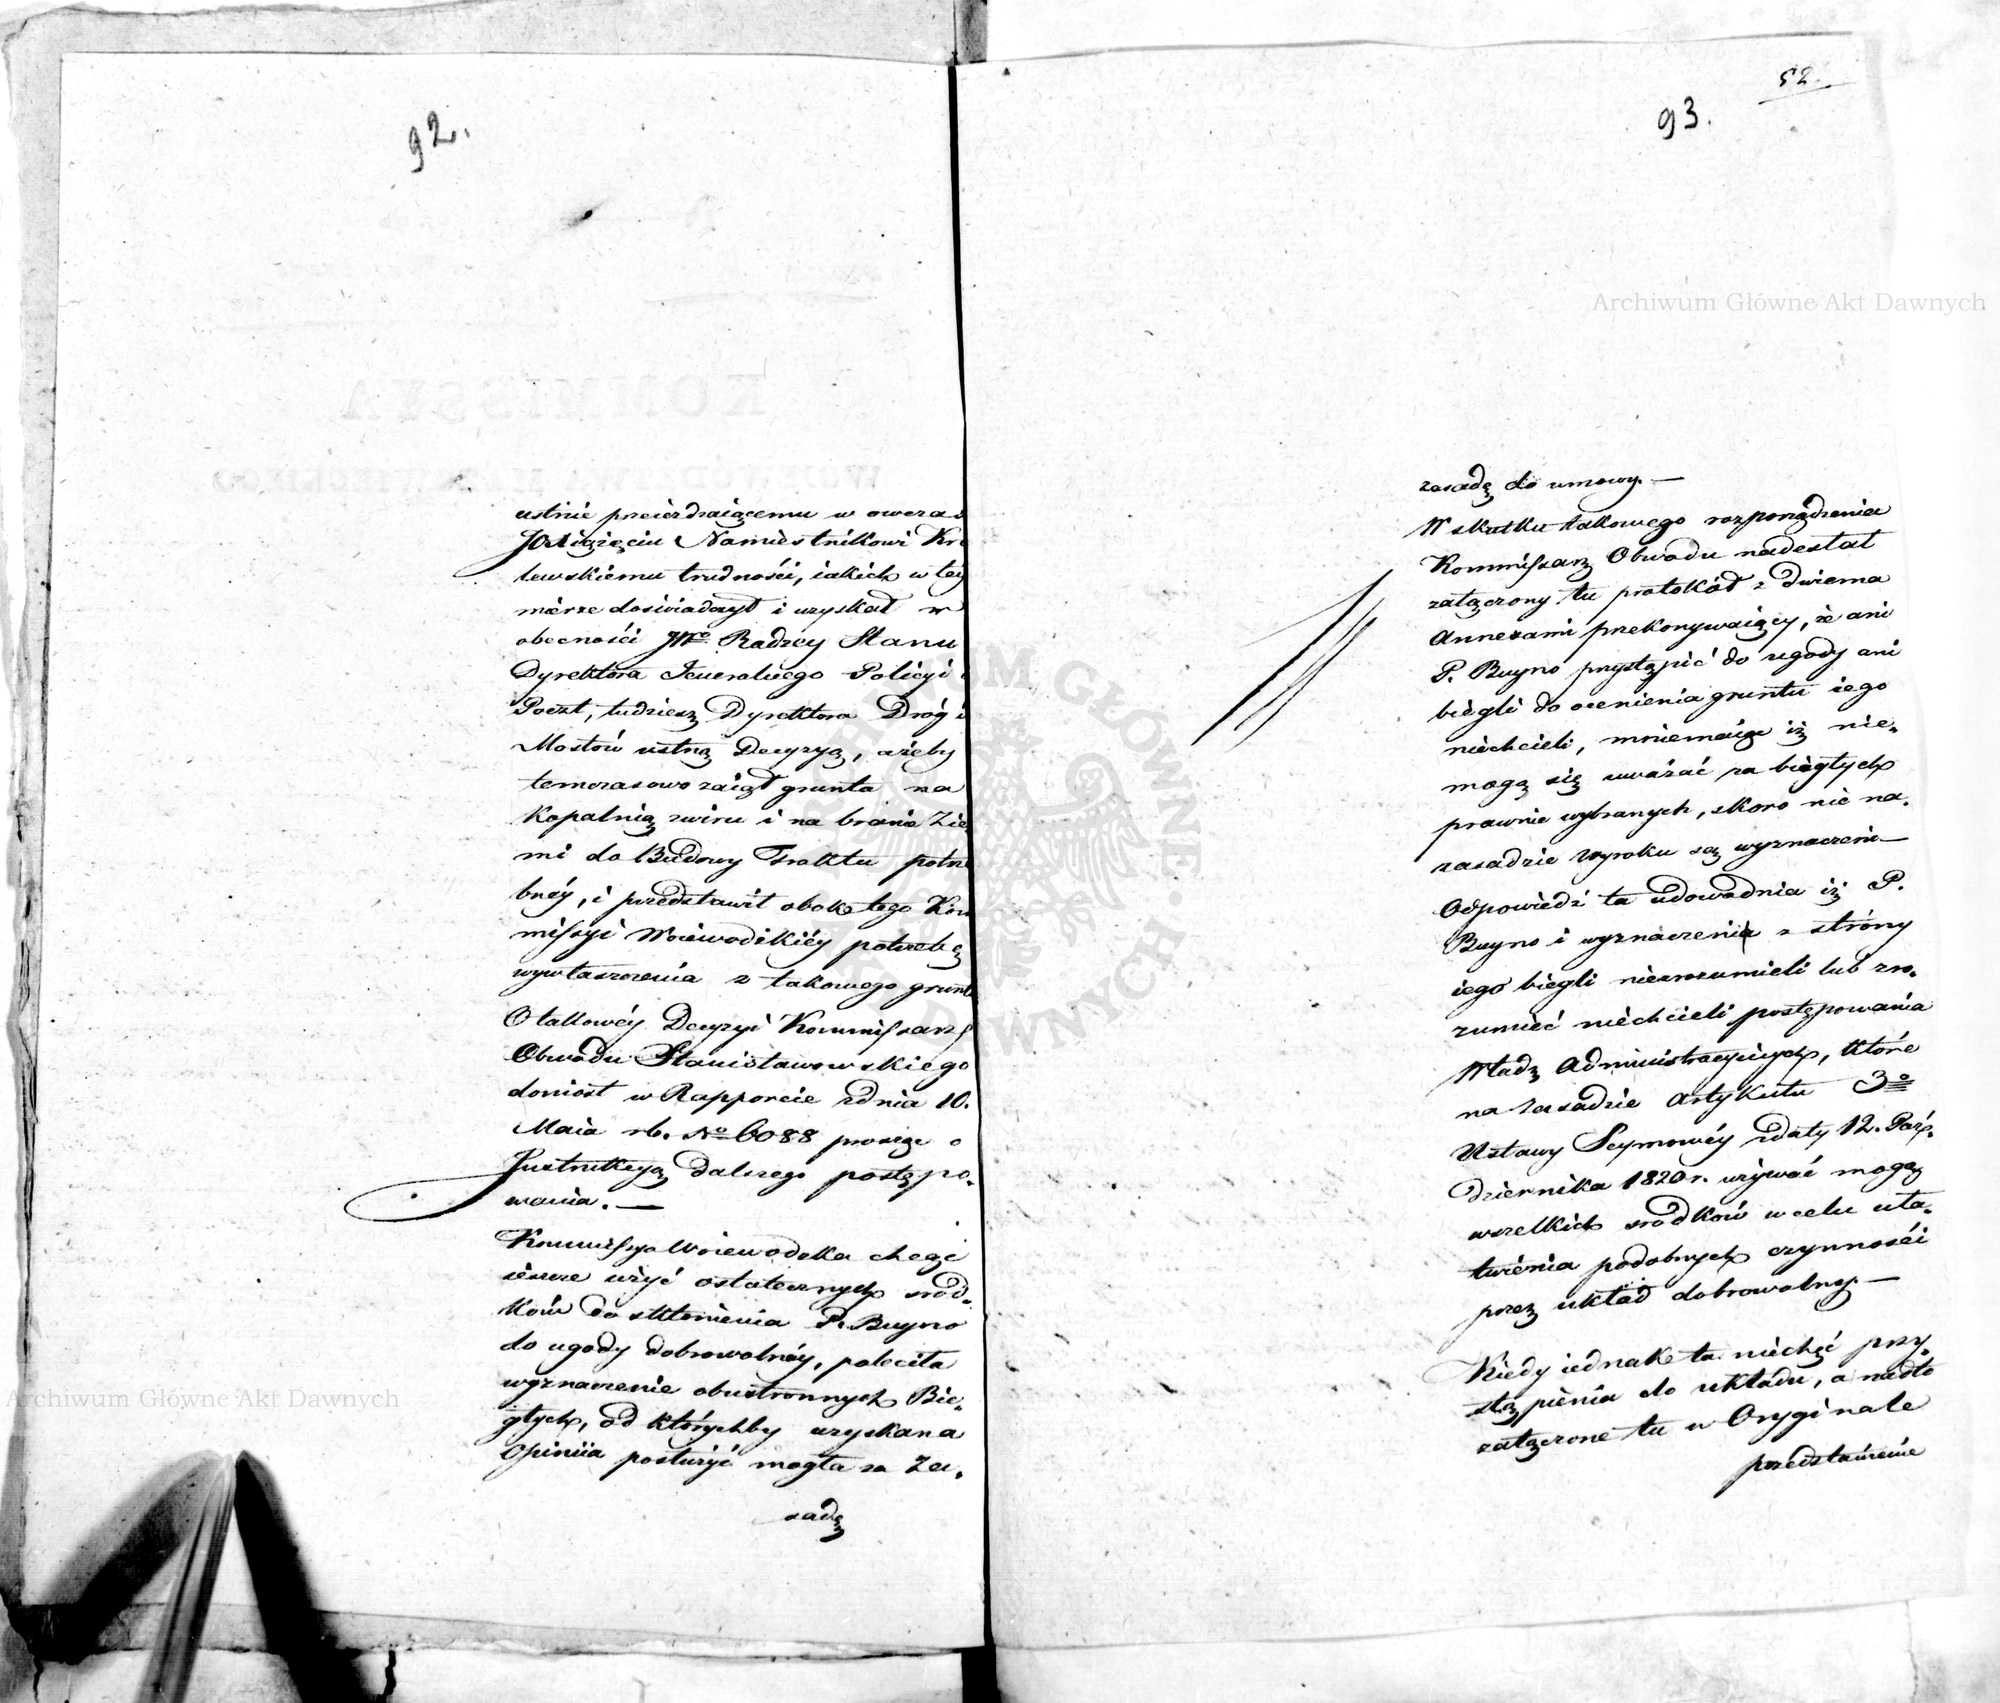 92.
ustnie przeieżdzaiącemu w owczas
JO. Xiążęciu Namiestnikowi Kró
lewskiemu trudności, iakich w tey
mierze doświadczył i uzyskał w
obecności JW<sup>go</sup> Radzcy Stanu
Dyrektora Jeneralnego Policyi i
Poczt, tudzież Dyrektora Dróg i
Mostów ustną Decyzyą, ażeby
temczasowo zaiął grunta na
Kopalnią żwiru i na branie Zie
mi do Budowy Traktu potrze
bnéy, i przedstawił obok tego Kom
missyi Woiewodzkiéy potrzebę
wywłaszczenia z takowego gruntu
O takowéy Decyzyi Kommissarz
Obwodu Stanisławowskiego
doniosł w Rapporcie z dnia 10.
Maia rb. No 6088 prosząc o
Instrukcyą dalszego postępo-
wania. —
Kommissya Woiewodzka chcąc
ieszcze użyć ostatecznych środ-
ków do skłonienia P. Buyno
do ugody dobrowolnéy, poleciła
wyznaczenie obustronnych Bie-
głych, od którychby uzyskana
Opiniia posłużyć mogła za Za-
sadę
52.
93.
zasadę do umowy. —
W skutku takowego rozporządzenia
Kommissarz Obwodu nadesłał
załączony tu protokół z dwiema
Annexami przekonywaiący, że ani
P. Buyno przystąpić do ugody ani
biegli do ocenienia gruntu iego
niechcieli, mniemaiąc iż nie-
mogą się uważać za biegłych
prawnie wybranych, skoro nie na-
zasadzie Wyroku są wyznaczeni —
Odpowiedź ta udowadnia iż P.
Buyno i wyznaczeni z strony
iego biegli niezrozumieli lub zro-
zumieć niechcieli postępowania
Władz Administracyinych, które
na zasadzie Artykułu 3<sup>o</sup>
Ustawy Seymowéy z daty 12. Paź-
dziernika 1820 r. używać mogą
wszelkich srodków w celu uła-
twienia podobnych czynności
przez układ dobrowolny. —
Kiedy iednak ta niechęć przy-
stąpienia do układu, a nadto
załączone tu w Oryginale
przedstawienie
Archiwum Główne Akt Dawnych
Archiwum Główne Akt Dawnych
ARCHIWUM GŁÓWNE AKT DAWNYCH
KOMMISSYA
WOIEWÓDZTWA MAZOWIECKIEGO